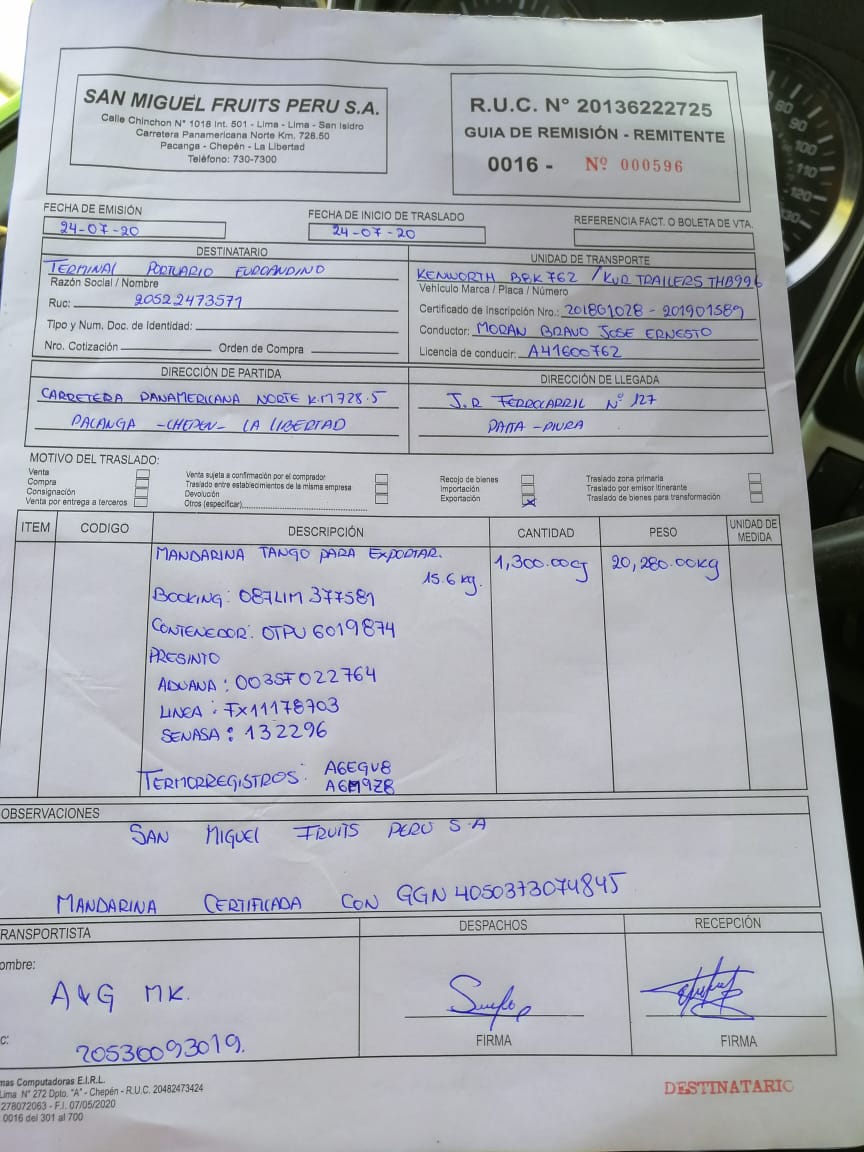 SAN MIGUEL FRUITS PERU S.A.
Calle Chinchon N° 1018 Int. 501 - Lima - Lima - San Isidro
Carretera Panamericana Norte Km. 728.50
Pacanga - Chepén - La Libertad
Teléfono: 730-7300
R.U.C. N° 20136222725
GUIA DE REMISIÓN - REMITENTE
0016 - Nº 000596
FECHA DE EMISIÓN
24-07-20
FECHA DE INICIO DE TRASLADO
24-07-20
REFERENCIA FACT. O BOLETA DE VTA.
DESTINATARIO
TERMINAL PORTUARIO EUROANDINO
Razón Social / Nombre
Ruc: 20522473571
Tipo y Num. Doc. de Identidad:
Nro. Cotización Orden de Compra
UNIDAD DE TRANSPORTE
KENWORTH BBK762 / KUR TRAILERS THB996
Vehículo Marca / Placa / Número
Certificado de Inscripción Nro.: 201801028 - 201901589
Conductor: MORAN BRAVO JOSE ERNESTO
Licencia de conducir: A41600762
DIRECCIÓN DE PARTIDA
CARRETERA PANAMERICANA NORTE K.M 728.5
PACANGA - CHEPEN - LA LIBERTAD
DIRECCIÓN DE LLEGADA
J.R FERROCARRIL Nº 127
PAITA - PIURA
MOTIVO DEL TRASLADO:
Venta
Compra
Consignación
Venta por entrega a terceros
Venta sujeta a confirmación por el comprador
Traslado entre establecimientos de la misma empresa
Devolución
Otros (especificar)
Recojo de bienes
Importación
Exportación X
Traslado zona primaria
Traslado por emisor itinerante
Traslado de bienes para transformación
ITEM CODIGO DESCRIPCIÓN CANTIDAD PESO UNIDAD DE MEDIDA
MANDARINA TANGO PARA EXPORTAR. 1,300.00cj 20,280.00KG
15.6 kg.
BOOKING: 087LIM377581
CONTENEDOR: OTPU 6019874
PRESINTO
ADUANA: 003SF022764
LINEA: FX11178703
SENASA: 132296
TERMORREGISTROS: A6EQV8
A6M9Z8
OBSERVACIONES
SAN MIGUEL FRUITS PERU S.A
MANDARINA CERTIFICADA CON GGN 4050373074845
RANSPORTISTA
ombre:
A&G MK.
c:
20530093019.
DESPACHOS
FIRMA
RECEPCIÓN
FIRMA
mas Computadoras E.I.R.L.
Lima N° 272 Dpto. "A" - Chepén - R.U.C. 20482473424
278072063 - F.I. 07/05/2020
0016 del 301 al 700
DESTINATARIO
80
90
100
110
120
130